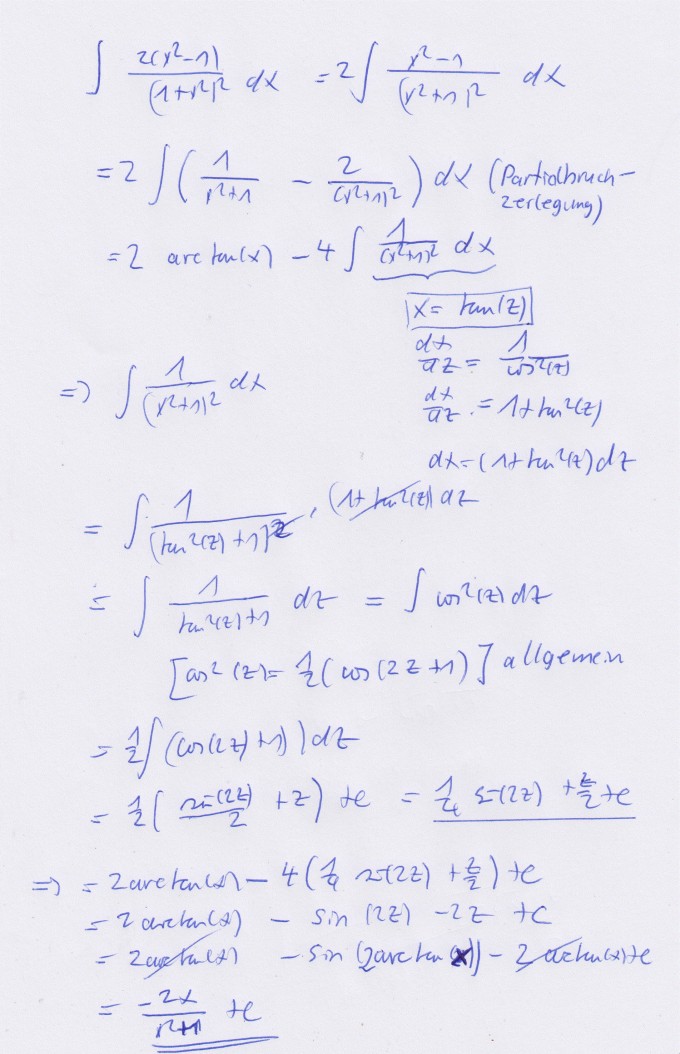 ∫ 2(x²-1)/(1+x²)² dx = 2∫ x²-1/(x²+1)² dx
= 2 ∫ ( 1/x²+1 - 2/(x²+1)² ) dx (Partialbruch-
zerlegung)
= 2 arctan(x) - 4 ∫ 1/(x²+1)² dx
x = tan(z)
dx/dz = 1/cos²(z)
=> ∫ 1/(x²+1)² dx
dx/dz = 1+tan²(z)
dx = (1+tan²(z)) dz
= ∫ 1/(tan²(z)+1)² · (1+tan²(z)) dz
= ∫ 1/tan²(z)+1 dz = ∫ cos²(z) dz
[cos²(z) = 1/2 (cos(2z+1)] allgemein
= 1/2 ∫ (cos(2z)+1)) dz
= 1/2 ( sin(2z)/2 + z ) + c = 1/4 sin(2z) + z/2 + c
=> = 2 arctan(x) - 4 ( 1/4 sin(2z) + z/2 ) + c
= 2 arctan(x) - sin (2z) - 2z + c
= 2 arctan(x) - sin (2 arctan(x)) - 2 arctan(x) + c
= -2x/x²+1 + c